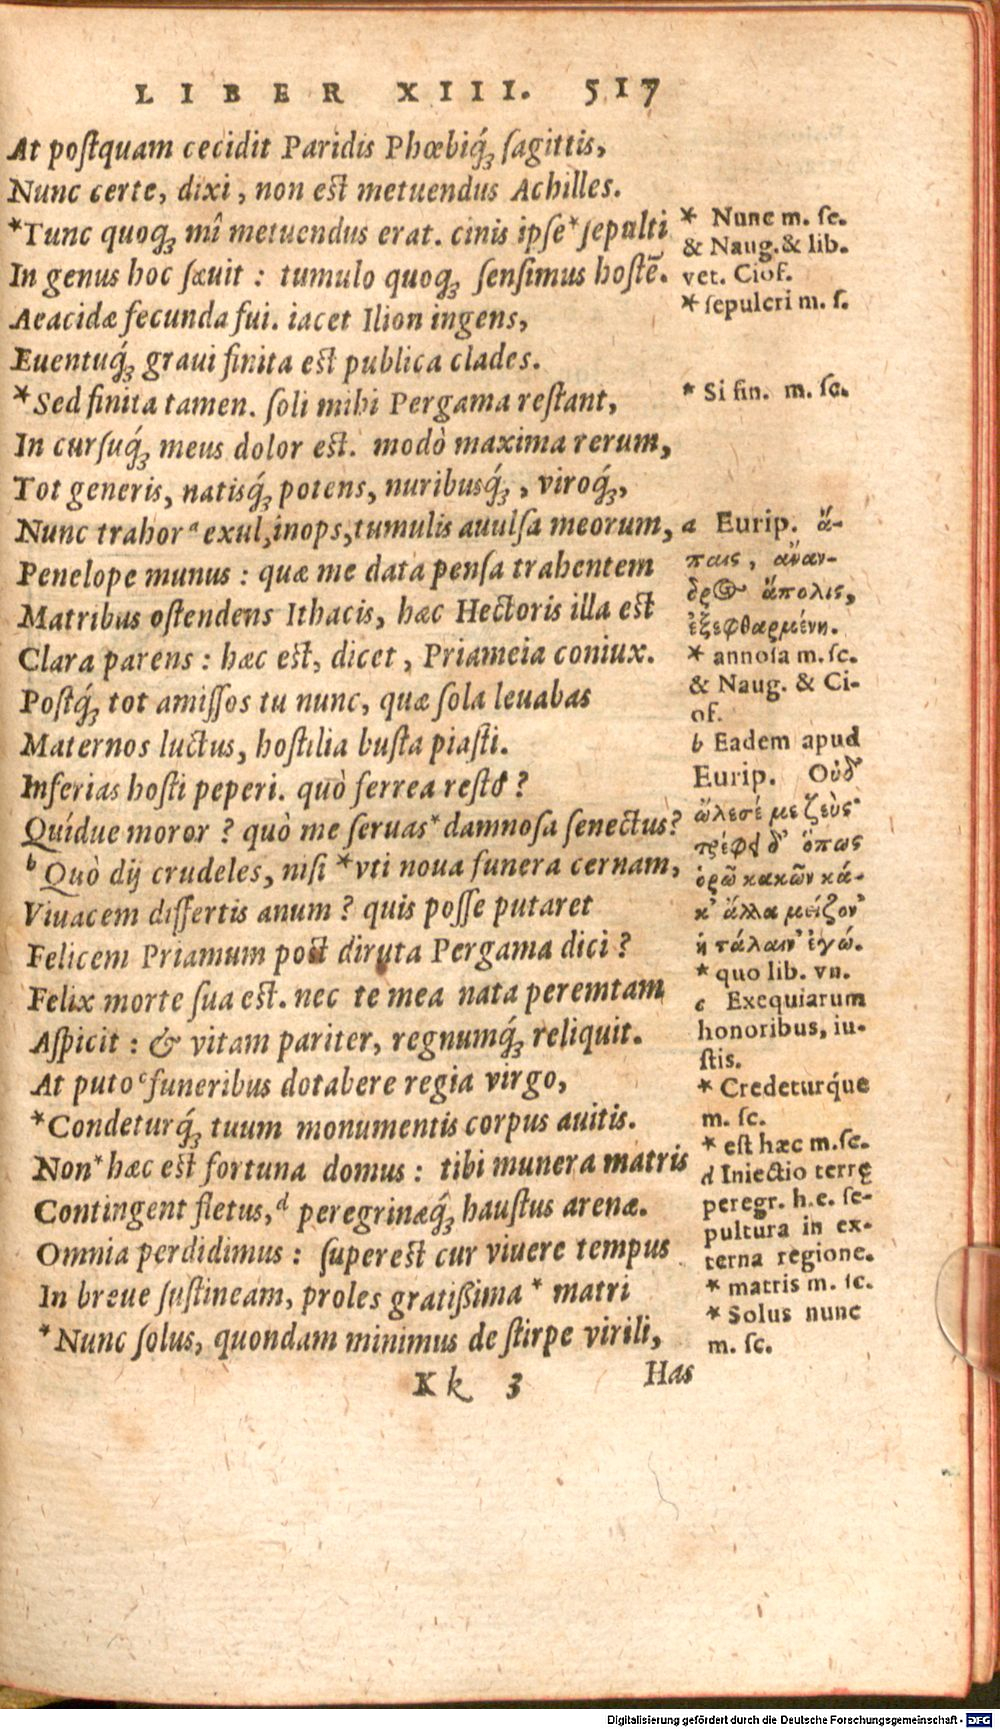 LIBER XIII. 517
At poſtquam cecidit Paridis Phœbiq́ꝫ ſagittis,
Nunc certe, dixi, non eſt metuendus Achilles.
*Tunc quoqꝫ mî metuendus erat. cinis ipſe * ſepulti
In genus hoc ſæuit : tumulo quoqꝫ ſenſimus hoſtē.
Aeacidæ fecunda fui. iacet Ilion ingens,
Euentuq́ꝫ graui finita eſt publica clades.
*Sed finita tamen. ſoli mihi Pergama reſtant,
In curſuq́ꝫ meus dolor eſt. modò maxima rerum,
Tot generis, natisq́ꝫ potens, nuribusq́ꝫ, viroq́ꝫ,
Nunc trahor ᵃ exul, inops, tumulis auulſa meorum,
Penelope munus : quæ me data penſa trahentem
Matribus oſtendens Ithacis, hæc Hectoris illa eſt
Clara parens : hæc eſt, dicet, Priameia coniux.
Poſtq́ꝫ tot amiſſos tu nunc, quæ ſola leuabas
Maternos luctus, hoſtilia buſta piaſti.
Inferias hoſti peperi. quò ferrea reſto ?
Quidue moror ? quò me ſeruas * damnoſa ſenectus?
ᵇ Quò dij crudeles, niſi * vti noua funera cernam,
Viuacem differtis anum ? quis poſſe putaret
Felicem Priamum poſt diruta Pergama dici ?
Felix morte ſua eſt. nec te mea nata peremtam
Aſpicit : & vitam pariter, regnumq́ꝫ reliquit.
At puto ᶜ funeribus dotabere regia virgo,
*Condeturq́ꝫ tuum monumentis corpus auitis.
Non * hæc eſt fortuna domus : tibi munera matris
Contingent fletus, ᵈ peregrinæq́ꝫ hauſtus arenæ.
Omnia perdidimus : ſupereſt cur viuere tempus
In breue ſuſtineam, proles gratißima * matri
*Nunc ſolus, quondam minimus de ſtirpe virili,
Kk 3 Has
* Nunc m. ſc.
& Naug. & lib.
vet. Ciof.
* ſepulcri m. ſ.
* Si fin. m. ſc.
a Eurip. ἄ-
παις, ἄναν-
δρος ἄπολις,
ἐξεφθαρμένη.
* annoſa m. ſc.
& Naug. & Ci-
of.
b Eadem apud
Eurip. Οὐδ'
ὤλεσέ με ζεὺς·
τρέφει δ' ὅπως
ὁρῶ κακῶν κά-
κ' ἄλλα μείζον'
ἡ τάλαιν' ἐγώ.
* quo lib. vn.
c Exequiarum
honoribus, iu-
ſtis.
* Credeturq́ue
m. ſc.
* eſt hæc m. ſc.
d Iniectio terrę
peregr. h. e. ſe-
pultura in ex-
terna regione.
* matris m. ſc.
* Solus nunc
m. ſc.
Digitalisierung gefördert durch die Deutsche Forschungsgemeinschaft - DFG